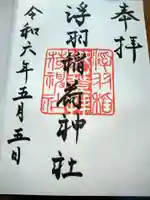 奉拝
浮羽稲荷神社
令和六年五月五日